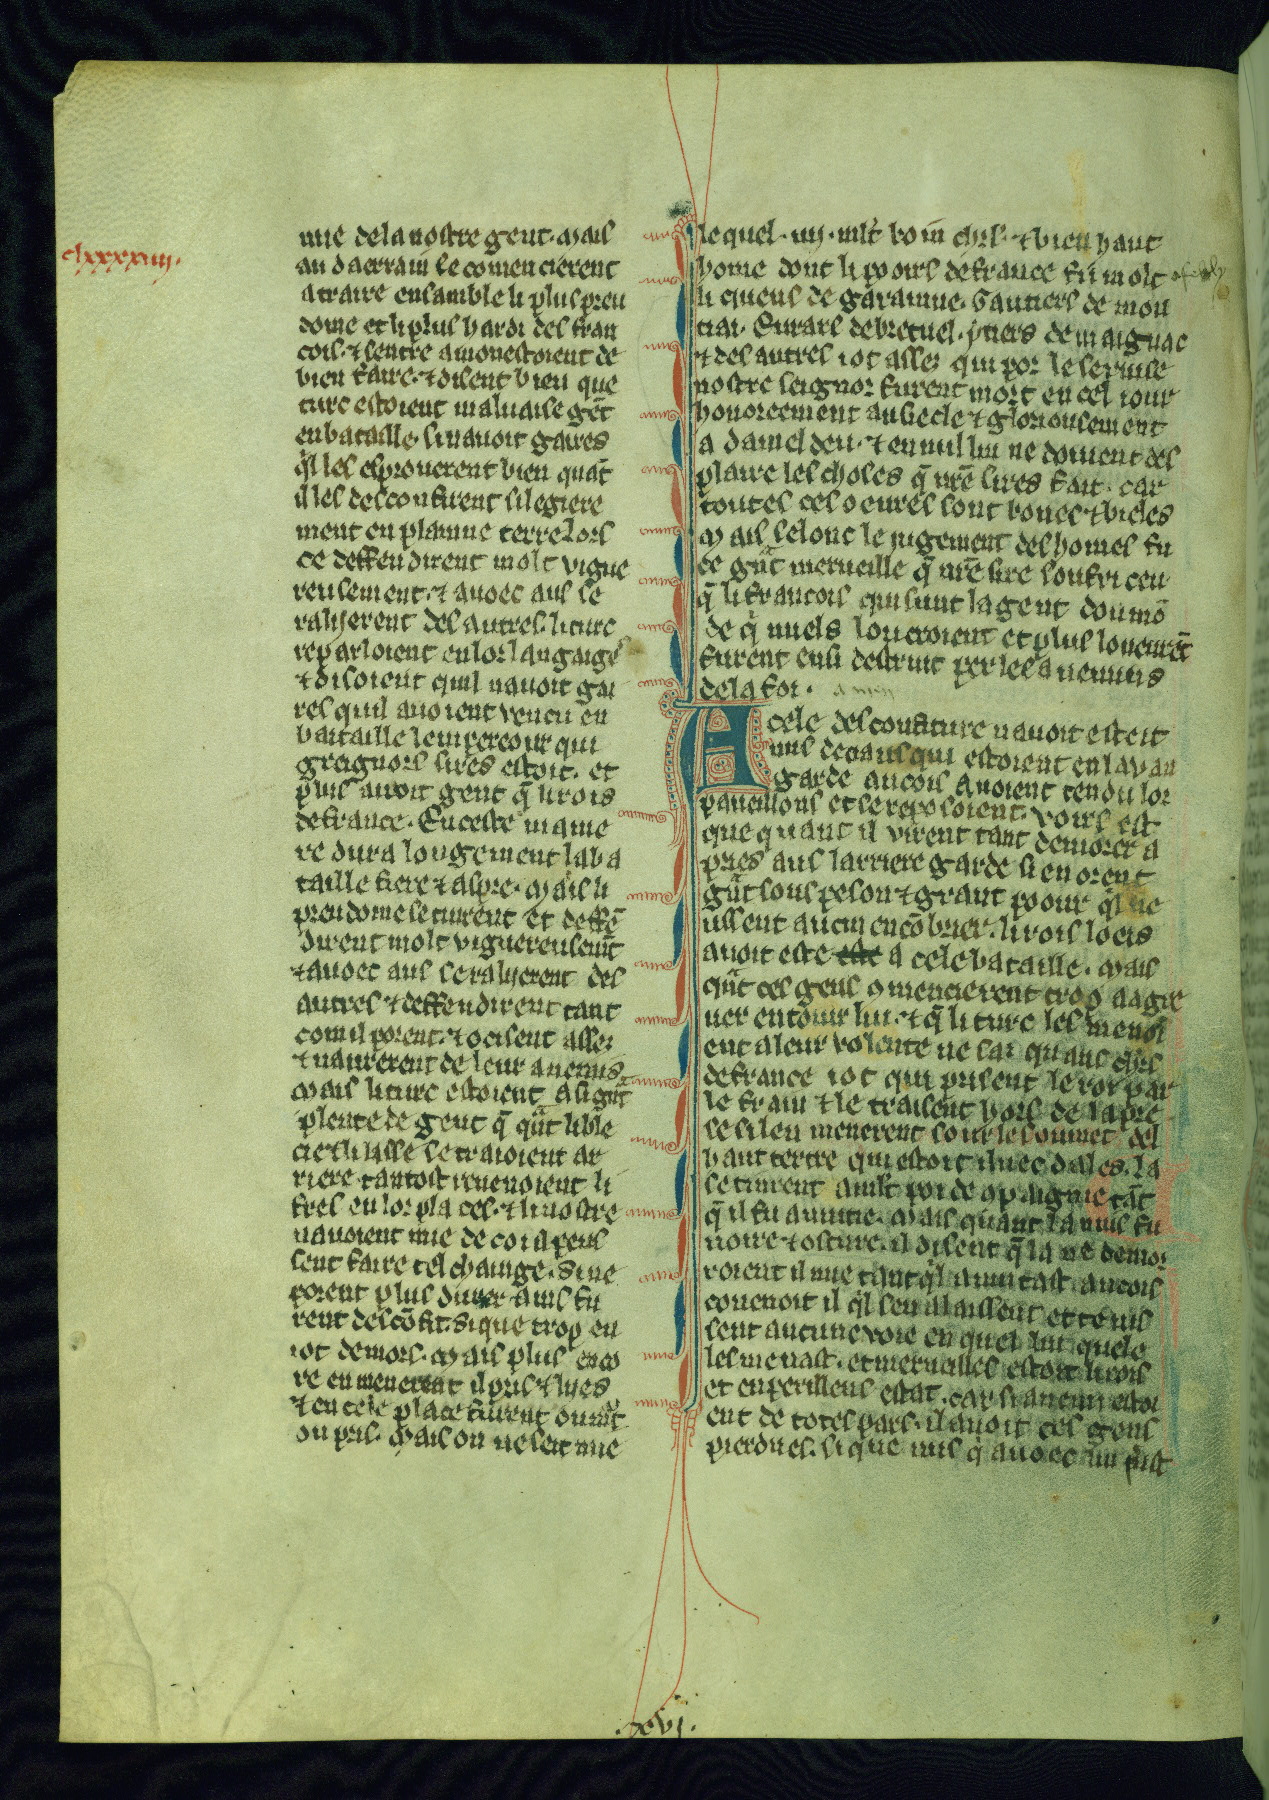 clxxxxiiii.
mie de la nostre gent. Mais
au daerrain se comencierent
a traire ensamble li plus preu
dome et li plus hardi des fran
cois. ⁊ sentre amonestoient de
bien faire. ⁊ disent bien que
turc estoient maluaise gēt
en bataille. si nauoit gaires
q̄l les esprouerent bien quāt
il les desconfirent si legiere
ment en plainne terre Lors
ce deffendirent molt vigue
reusement. ⁊ auoec aus se
ralyerent des autres. li turc
reparloient en lor langaige
⁊ disoient quil nauoit gai
res quil auoient vencu en
bataille lempereour qui
greignors sires estoit. et
plus auoit gent q̄ li rois
de france. En ceste manie
re dura longement la ba
taille fiere ⁊ aspre. Mais li
preudome se turent et deffē
dirent molt viguereusemēt
⁊ auoec aus se ralyerent des
autres ⁊ deffendirent tant
com il porent. ⁊ ocisent asses
⁊ naurerent de leur anemis.
Mais li turc estoient a si grāt
plente de gent q̄ quāt li ble
cie ⁊ li lasse se traioient ar
riere tantost reuenoient li
fres en lor places. ⁊ li nostre
nauoient mie de coi il peus
sent faire tel chainge. Si ne
porent plus durer ains fu
rent descōfit. Si que trop en
iot de mors. Mais plus enco
re en menerent il pris ⁊ lyes
⁊ en cele place furent ou mīt
ou pris. Mais on ne seit mie
lequel. iiij. mlt̄ boin chrs. ⁊ bien haut
home dont li pooirs de france fu molt
li cuens de garainne. Gautiers de mon
iai. Eurars de bretuel. ytiers de maignac
⁊ des autres iot asses qui por le seruise
nostre seignor furent mort en cel iour
honoreement au siecle ⁊ gloriousement
a damel deu. ⁊ en nul lui ne doiuent des
plaire les choses q̄ nr̄e sires fait. car
toutes ces oeures sont bones ⁊ bieles
Mais selonc le iugement des homes fu
ce grāt merueille q̄ nr̄e sire soufri ceu
q̄ li francois qui sunt la gent dou mō
de q̄ miels loueroient et plus
furent ensi destruit per les anemis
de la foi. amen
A cele desconfiture nauoit este it
nus de ciaus qui estoient en lauan
garde ancois auoient tendu lor
paueillons et se reposoient. Voirs est
que quant il virent tant demorer a
pres aus larriere garde si en orent
grāt souspeson ⁊ grant poour q̄l ne
ussent aucun encōbrier. li rois loeis
auoit este este a cele bataille. Mais
quāt ces gens 9mencierent trop a agre
uer entour lui. ⁊ q̄ li turc les menoi
ent a leur volente ne sai quans chrs
de france iot qui prisent le roi par
le frain ⁊ le traisent hors de la pre
se si len menerent sour le sommet del
haut tertre qui estoit iluec dales. la
se tinrent a mlt poi de 9paignie tāt
q̄ il fu anuitie. Mais quant la nuis fu
noire ⁊ oscure. il disent q̄ la ne demor
roient il mie tant q̄l aiournast ancois
couenoit il q̄l sen alaissent et tenis
sent aucune voie en quel lui quele
les menast. et merueilles estoit li rois
et en perilleus estat. car si anemi estoi
ent de totes pars. il auoit ces gens
pierdues. si que nus q̄ auoec lui fust
.xvj.